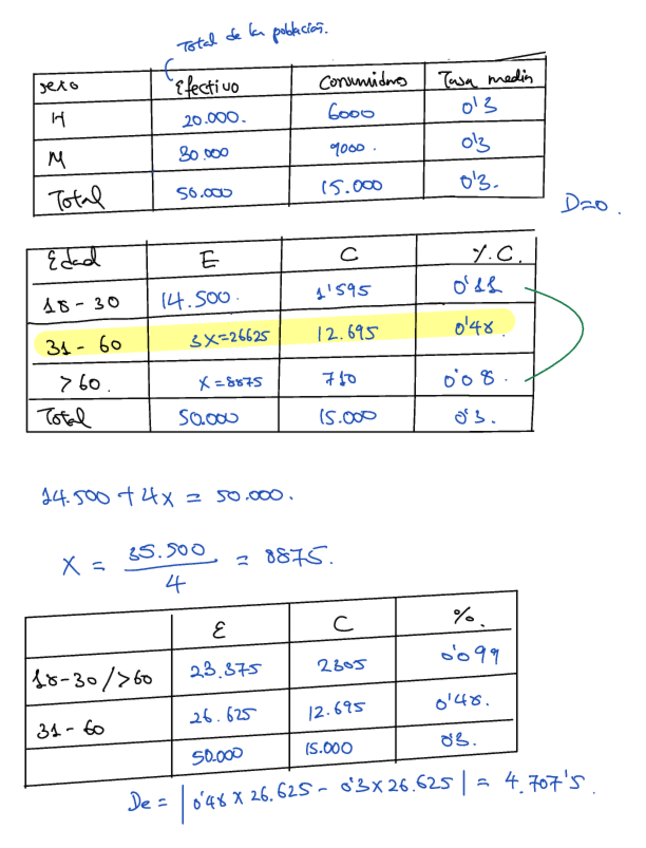 Total de la población.
sexo Efectivo Consumidores Tasa media
H 20.000. 6000 0'3
M 30.000 9000. 0'3
Total 50.000 15.000 0'3.
D=0.
Edad E C %.C.
18-30 14.500. 1'595 0'11
31-60 3X=26625 12.695 0'48.
>60. X=8875 710 0'08.
Total 50.000 15.000 0'3.
14.500 + 4x = 50.000.
X = 35.500 / 4 = 8875.
E C %.
18-30/>60 23.375 2305 0'099
31-60 26.625 12.695 0'48.
50.000 15.000 0'3.
De = | 0'48 x 26.625 - 0'3 x 26.625 | = 4.707'5.